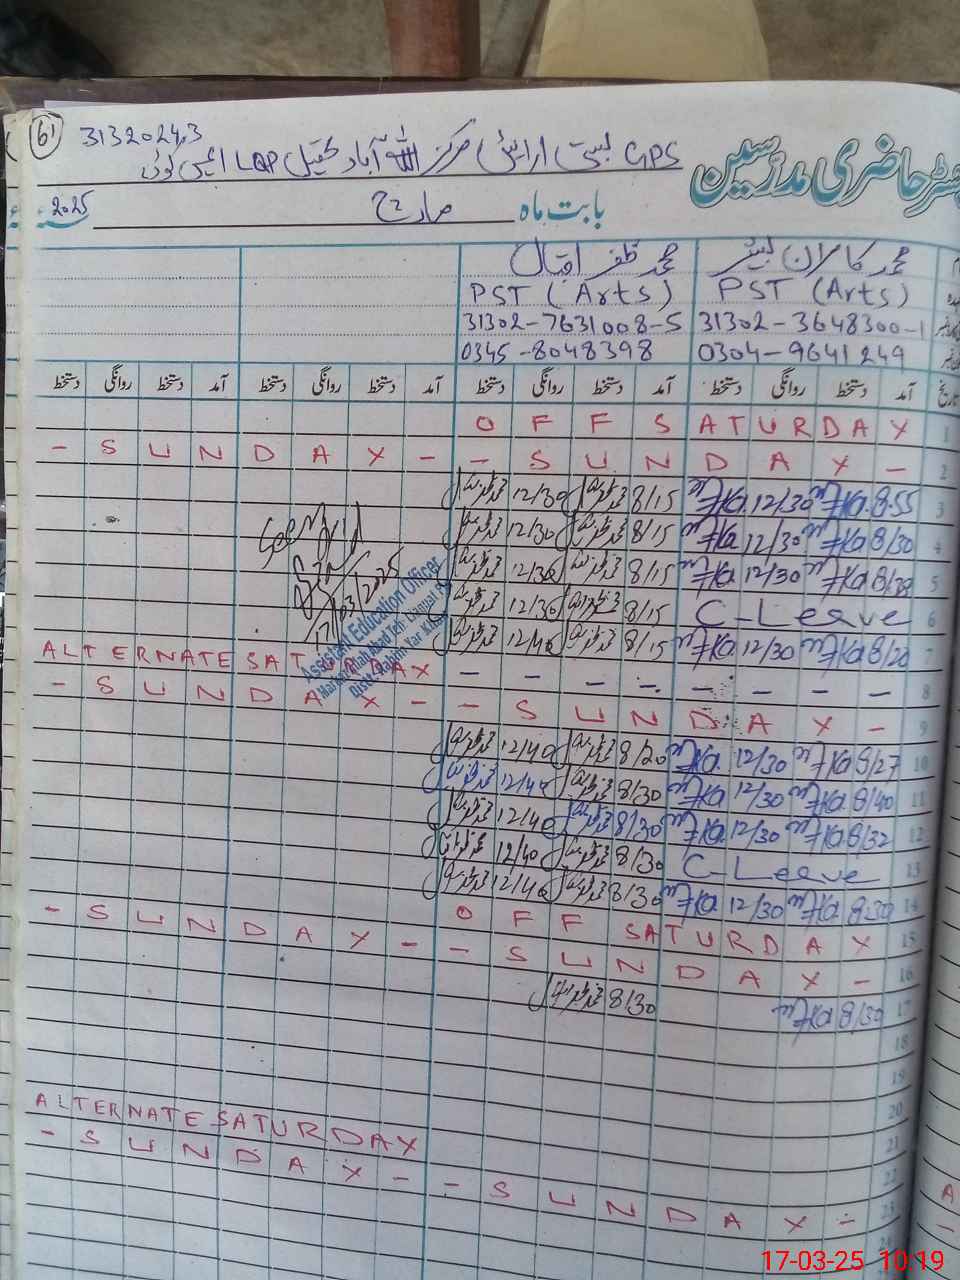 61
31320243
GPS بستی ارائیں مرکز اللہ آباد تحصیل LQP
رجسٹر حاضری مدرسین
بابت ماہ مارچ 2025
محمد کامران بشیر محمد ظفر اقبال
PST (Arts) PST (Arts)
31302-3648300-1 31302-7631008-5
0304-9641249 0345-8048398
تاریخ آمد دستخط روانگی دستخط آمد دستخط روانگی دستخط آمد دستخط روانگی دستخط آمد دستخط روانگی دستخط
1 OFF SATURDAY
2 - SUNDAY - - SUNDAY -
3 8.55 12/30 8/15 12/30
4 8/30 12/30 8/15 12/30
5 12/30 8/15 12/30
6 C-Leave 8/15 12/30
7 8/20 12/30 8/15 12/40
ALTERNATE SATURDAY
8 - - - - - - - -
9 - SUNDAY - - SUNDAY -
Seen
17/03/2025
Assistant Education Officer
10 8/27 12/30 8/20 12/40
11 8/40 12/30 8/30 12/40
12 8/32 12/30 8/30 12/40
13 C-Leave 8/30 12/40
14 8:30 12/30 8/30 12/40
15 OFF SATURDAY
16 - SUNDAY - - SUNDAY -
17 8/30 8/30
18
19
20
21
ALTERNATE SATURDAY
22
23 - SUNDAY - - SUNDAY -
24
17-03-25 10:19